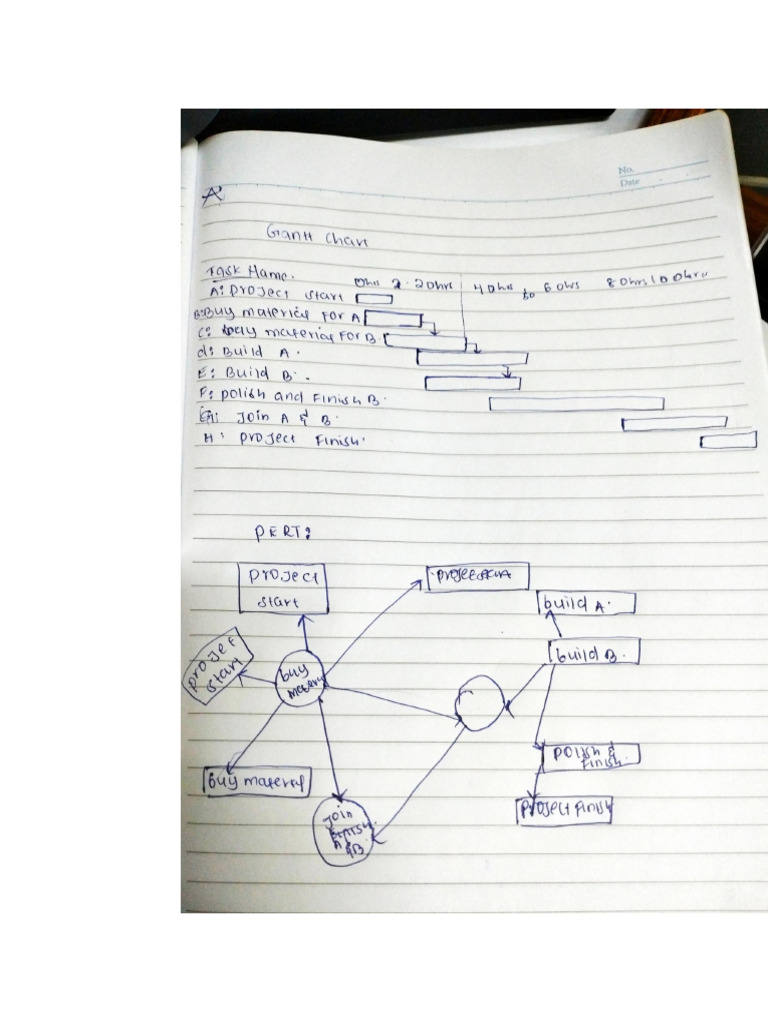 No.
Date
A
Gantt Chart
Task Name.
0hrs 2.20hrs 40hrs to 60hrs 80hrs 100hrs
A: project start
B: Buy material for A
C: buy material for B
d: Build A.
E: Build B.
F: polish and Finish B.
G: Join A & B.
H: project Finish.
PERT:
project
start
build A.
projet
start
buy
matery
build B.
polish &
finish.
buy material
project finish
Join
A
&B